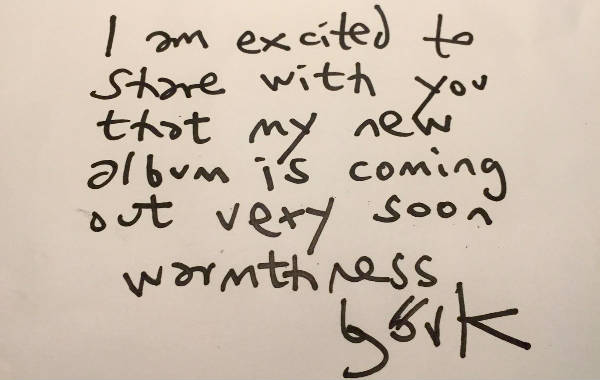 I am excited to
share with you
that my new
album is coming
out very soon
warmthness
björk